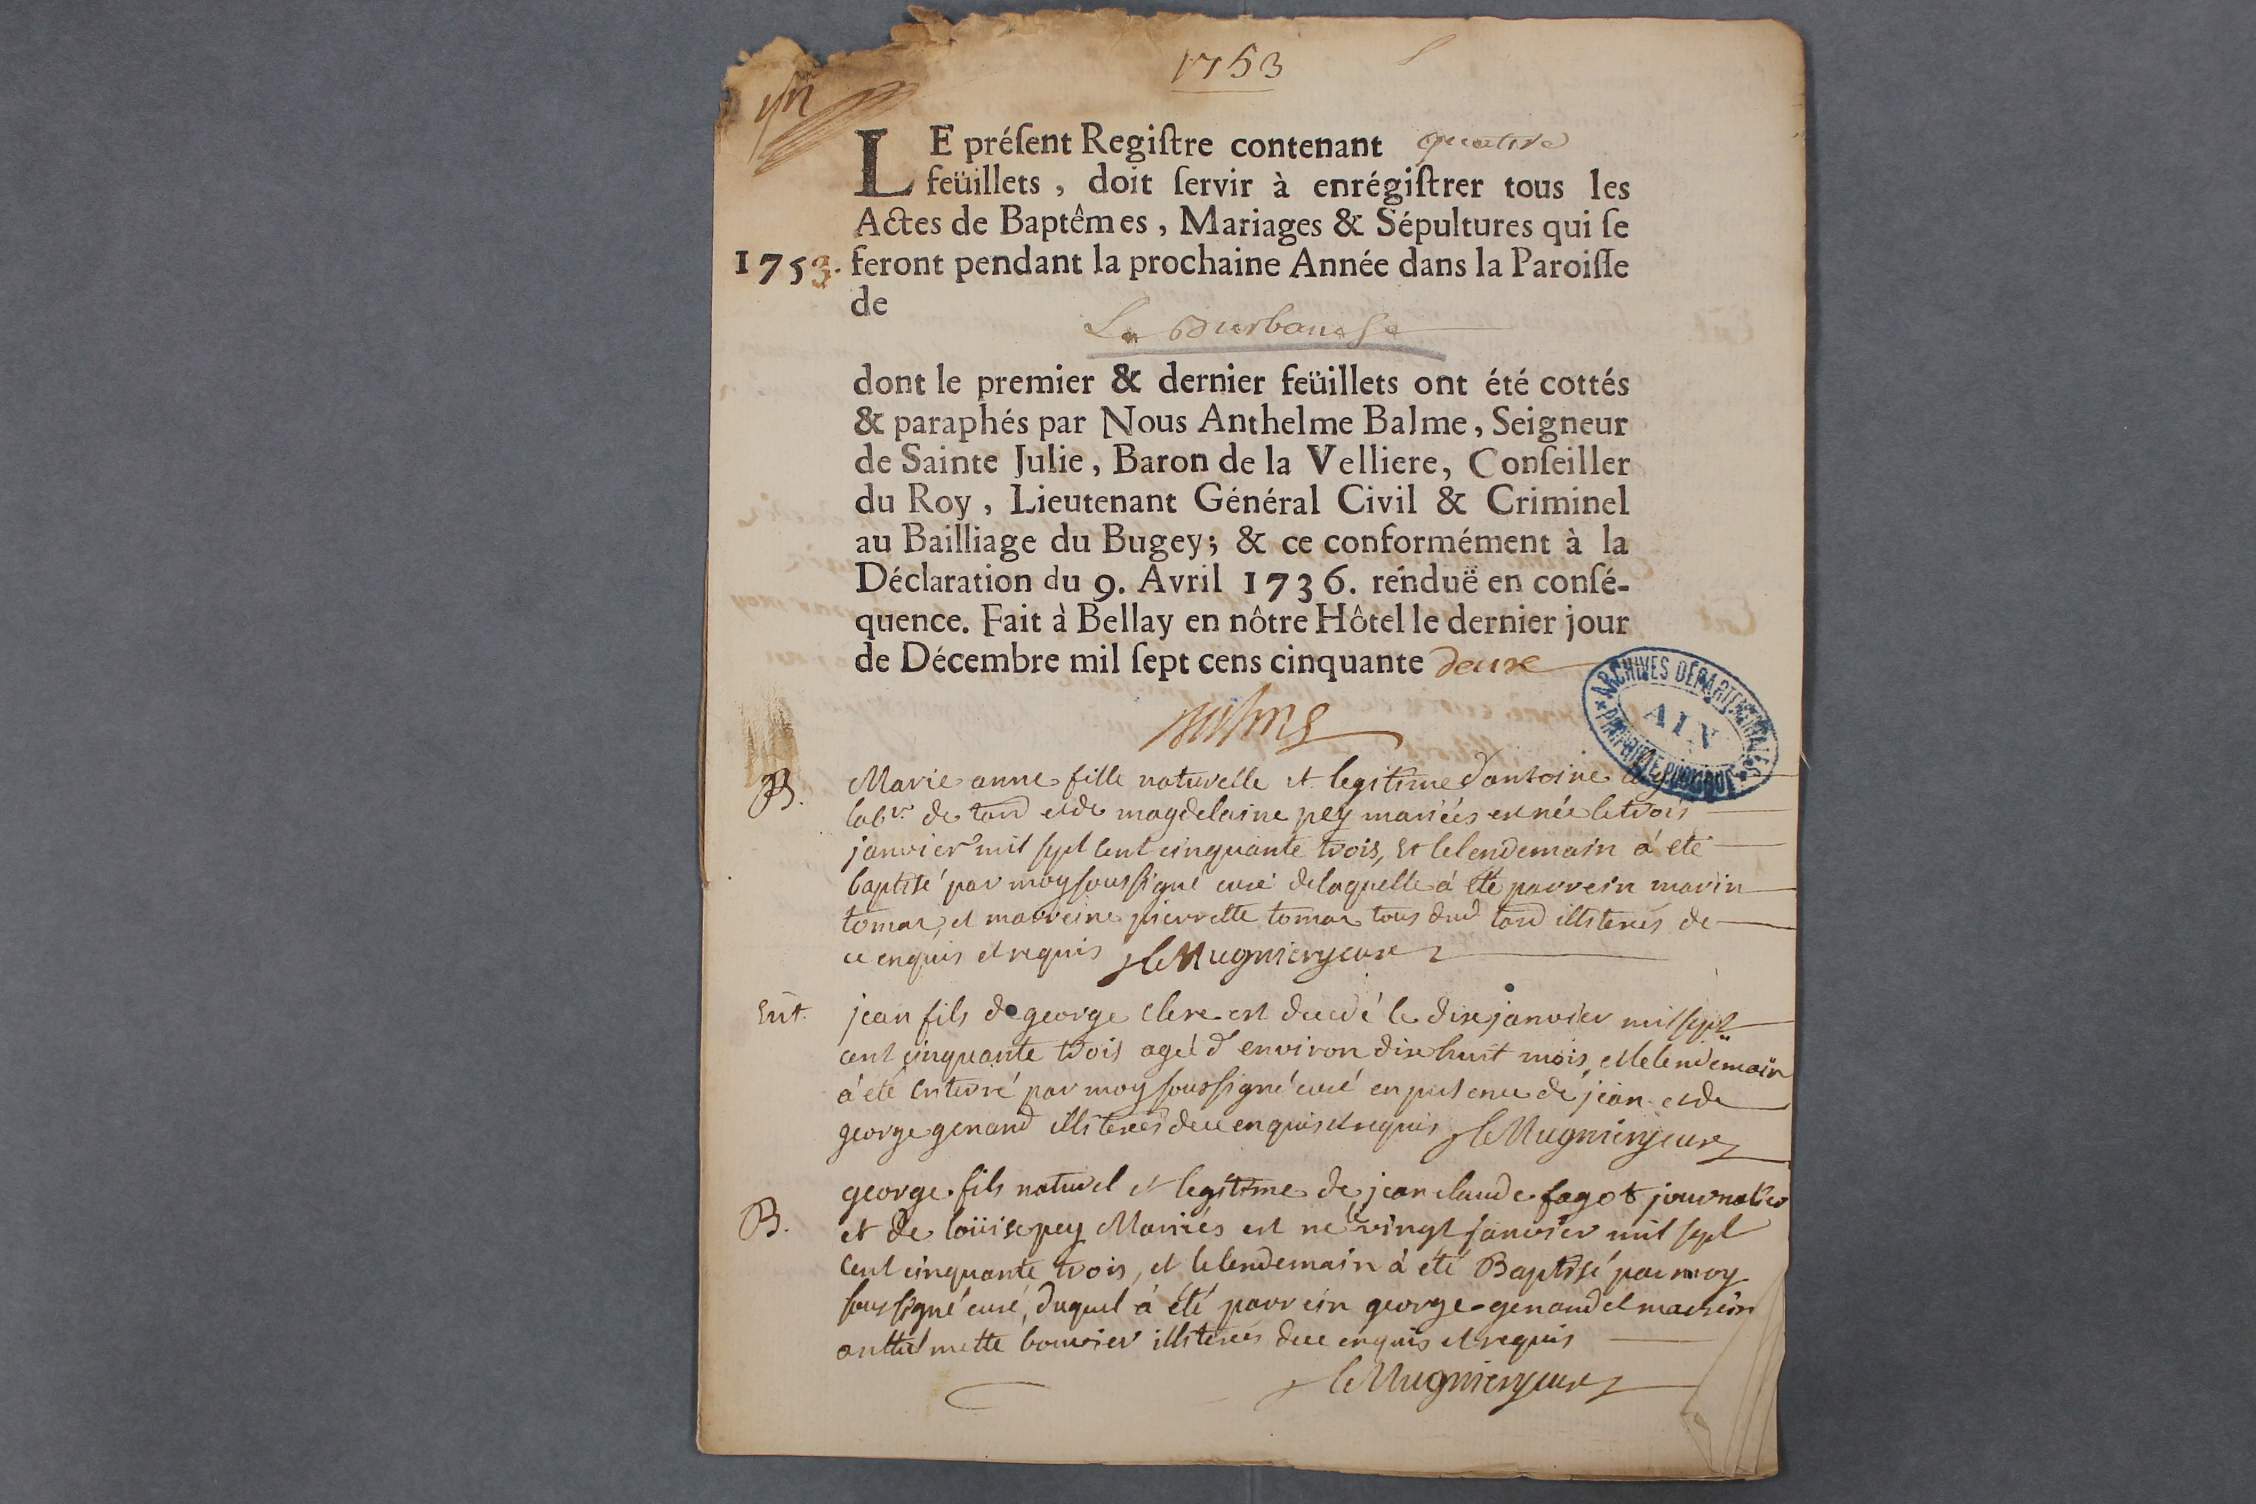 1753
LE préſent Regiſtre contenant quatre
feüillets, doit ſervir à enrégiſtrer tous les
Actes de Baptêmes, Mariages & Sépultures qui ſe
1753. feront pendant la prochaine Année dans la Paroiſſe
de
La Burbanche
dont le premier & dernier feüillets ont été cottés
& paraphés par Nous Anthelme Balme, Seigneur
de Sainte Julie, Baron de la Velliere, Conſeiller
du Roy, Lieutenant Général Civil & Criminel
au Bailliage du Bugey; & ce conformément à la
Déclaration du 9. Avril 1736. renduë en conſé-
quence. Fait à Bellay en nôtre Hôtel le dernier jour
de Décembre mil ſept cens cinquante deux
ARCHIVES DEPARTEMENTALES
AIN
PROPRIETE PUBLIQUE
B. Marie anne fille naturelle et legitime d'antoine
labr. de tard et de magdelaine pey mariés est née le trois
janvier mil sept cent cinquante trois, et le lendemain à eté
baptisé par moy soussigné curé de laquelle à été parrein marin
tomas, et marreine pierrette tomas tous dud tard illiterés de
ce enquis et requis Le Mugnier curé
Ent. jean fils de george clere est decedé le dix janvier mil sept
cent cinquante trois agé d'environ dix huit mois, et le lendemain
à eté enterré par moy soussigné curé en presence de jean et de
george genand illiterés de ce enquis et requis Le Mugnier curé
B. george fils naturel et legitime de jean claude fagot journalier
et de loüise pey Mariés est né le vingt janvier mil sept
cent cinquante trois, et le lendemain à été Baptisé par moy
soussigné curé, duquel à été parrein george genand et marrein
anthelmette bouvier illiterés de ce enquis et requis
Le Mugnier curé